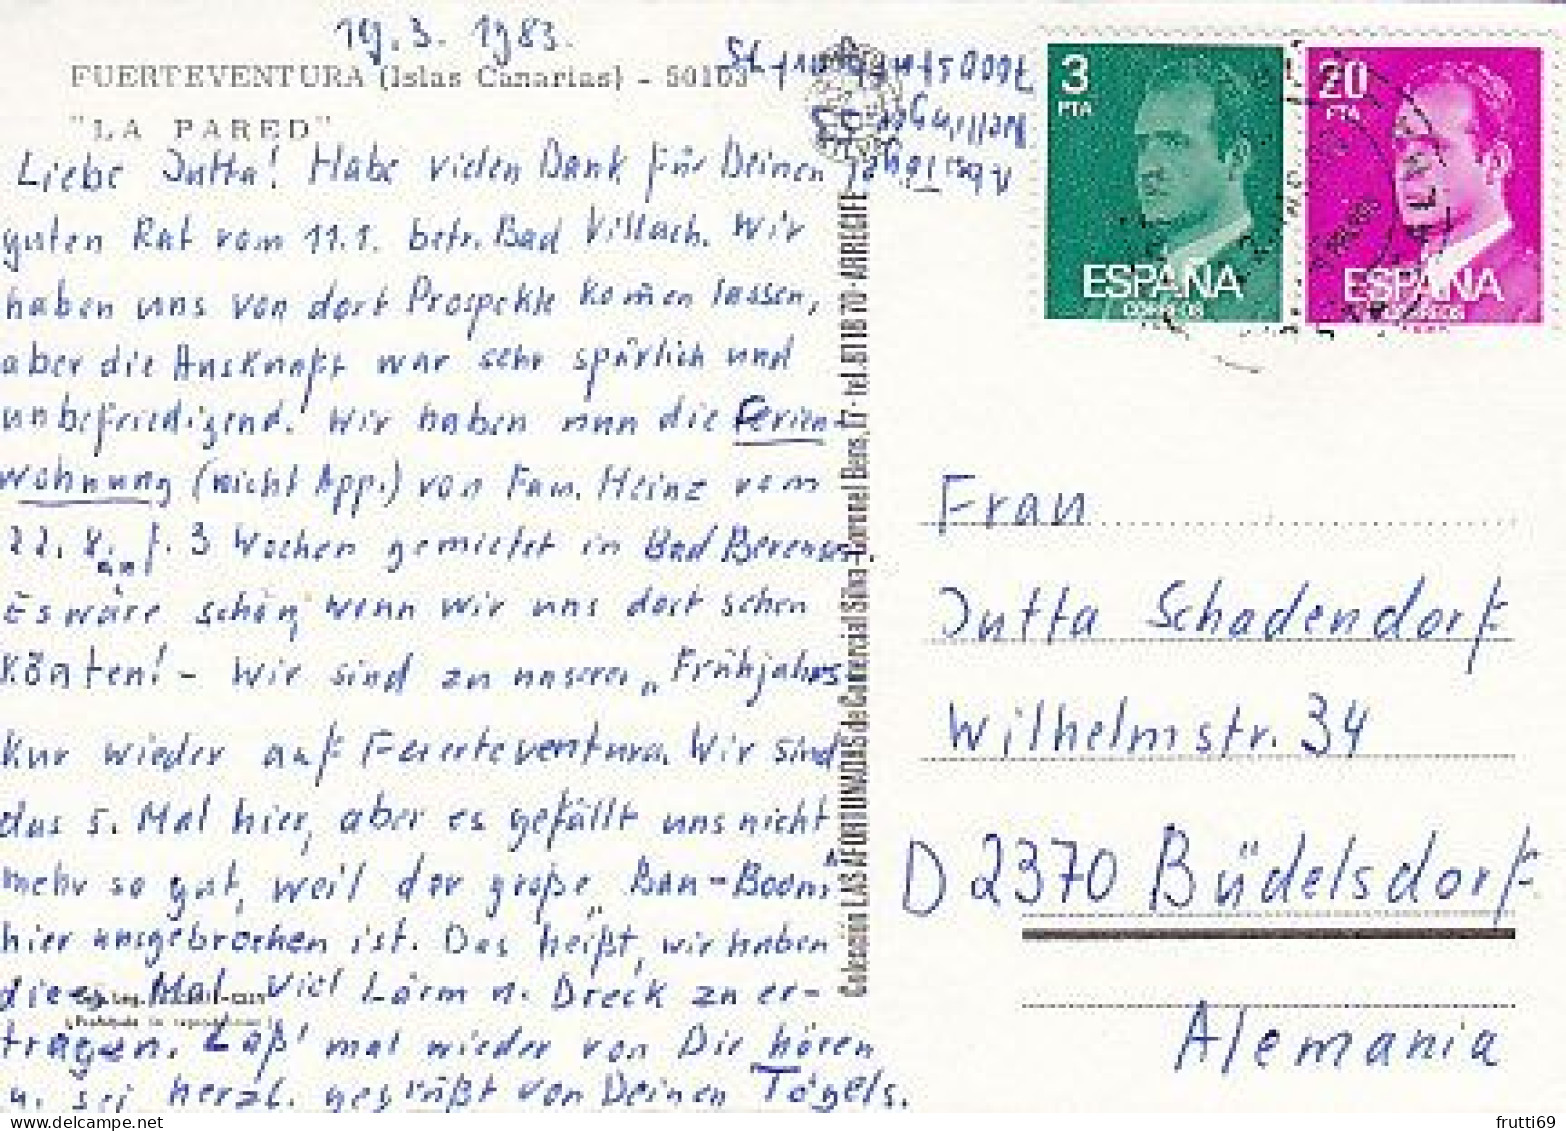 19.3. 1983.
FUERTEVENTURA (Islas Canarias) - 50103
"LA PARED"
Liebe Jutta! Habe vielen Dank für Deinen
guten Rat vom 11.1. betr. Bad Villach. Wir
haben uns von dort Prospekte kom̄en lassen,
aber die Auskunft war sehr spärlich und
unbefriedigend. Wir haben nun die Ferien-
wohnung (nicht App.) von Fam. Heinz vom
22. auf 3 Wochen gemietet in Bad
Es wäre schön, wenn wir uns dort sehen
kön̄ten! - Wir sind zu unserer „Frühjahrs
Kur wieder auf Fuerteventura. Wir sind
das 5. Mal hier, aber es gefällt uns nicht
mehr so gut, weil der große „Bau-Boom"
hier ausgebrochen ist. Das heißt, wir haben
dieses Mal viel Lärm u. Dreck zu er-
tragen. Laß' mal wieder von Dir hören
u. sei herzl. gegrüßt von Deinen Tögels.
Abs: Tögel
33
7000 Stuttgart 75
Colección LAS AFORTUNADAS de Comercial Silva - Coronel Bens, 17 - tel. 81 18 70 - ARRECIFE
3
PTA
ESPAÑA
CORREOS
20
PTA
ESPAÑA
CORREOS
Frau
Jutta Schadendorf
Wilhelmstr. 34
D 2370 Büdelsdorf
Alemania
frutti69